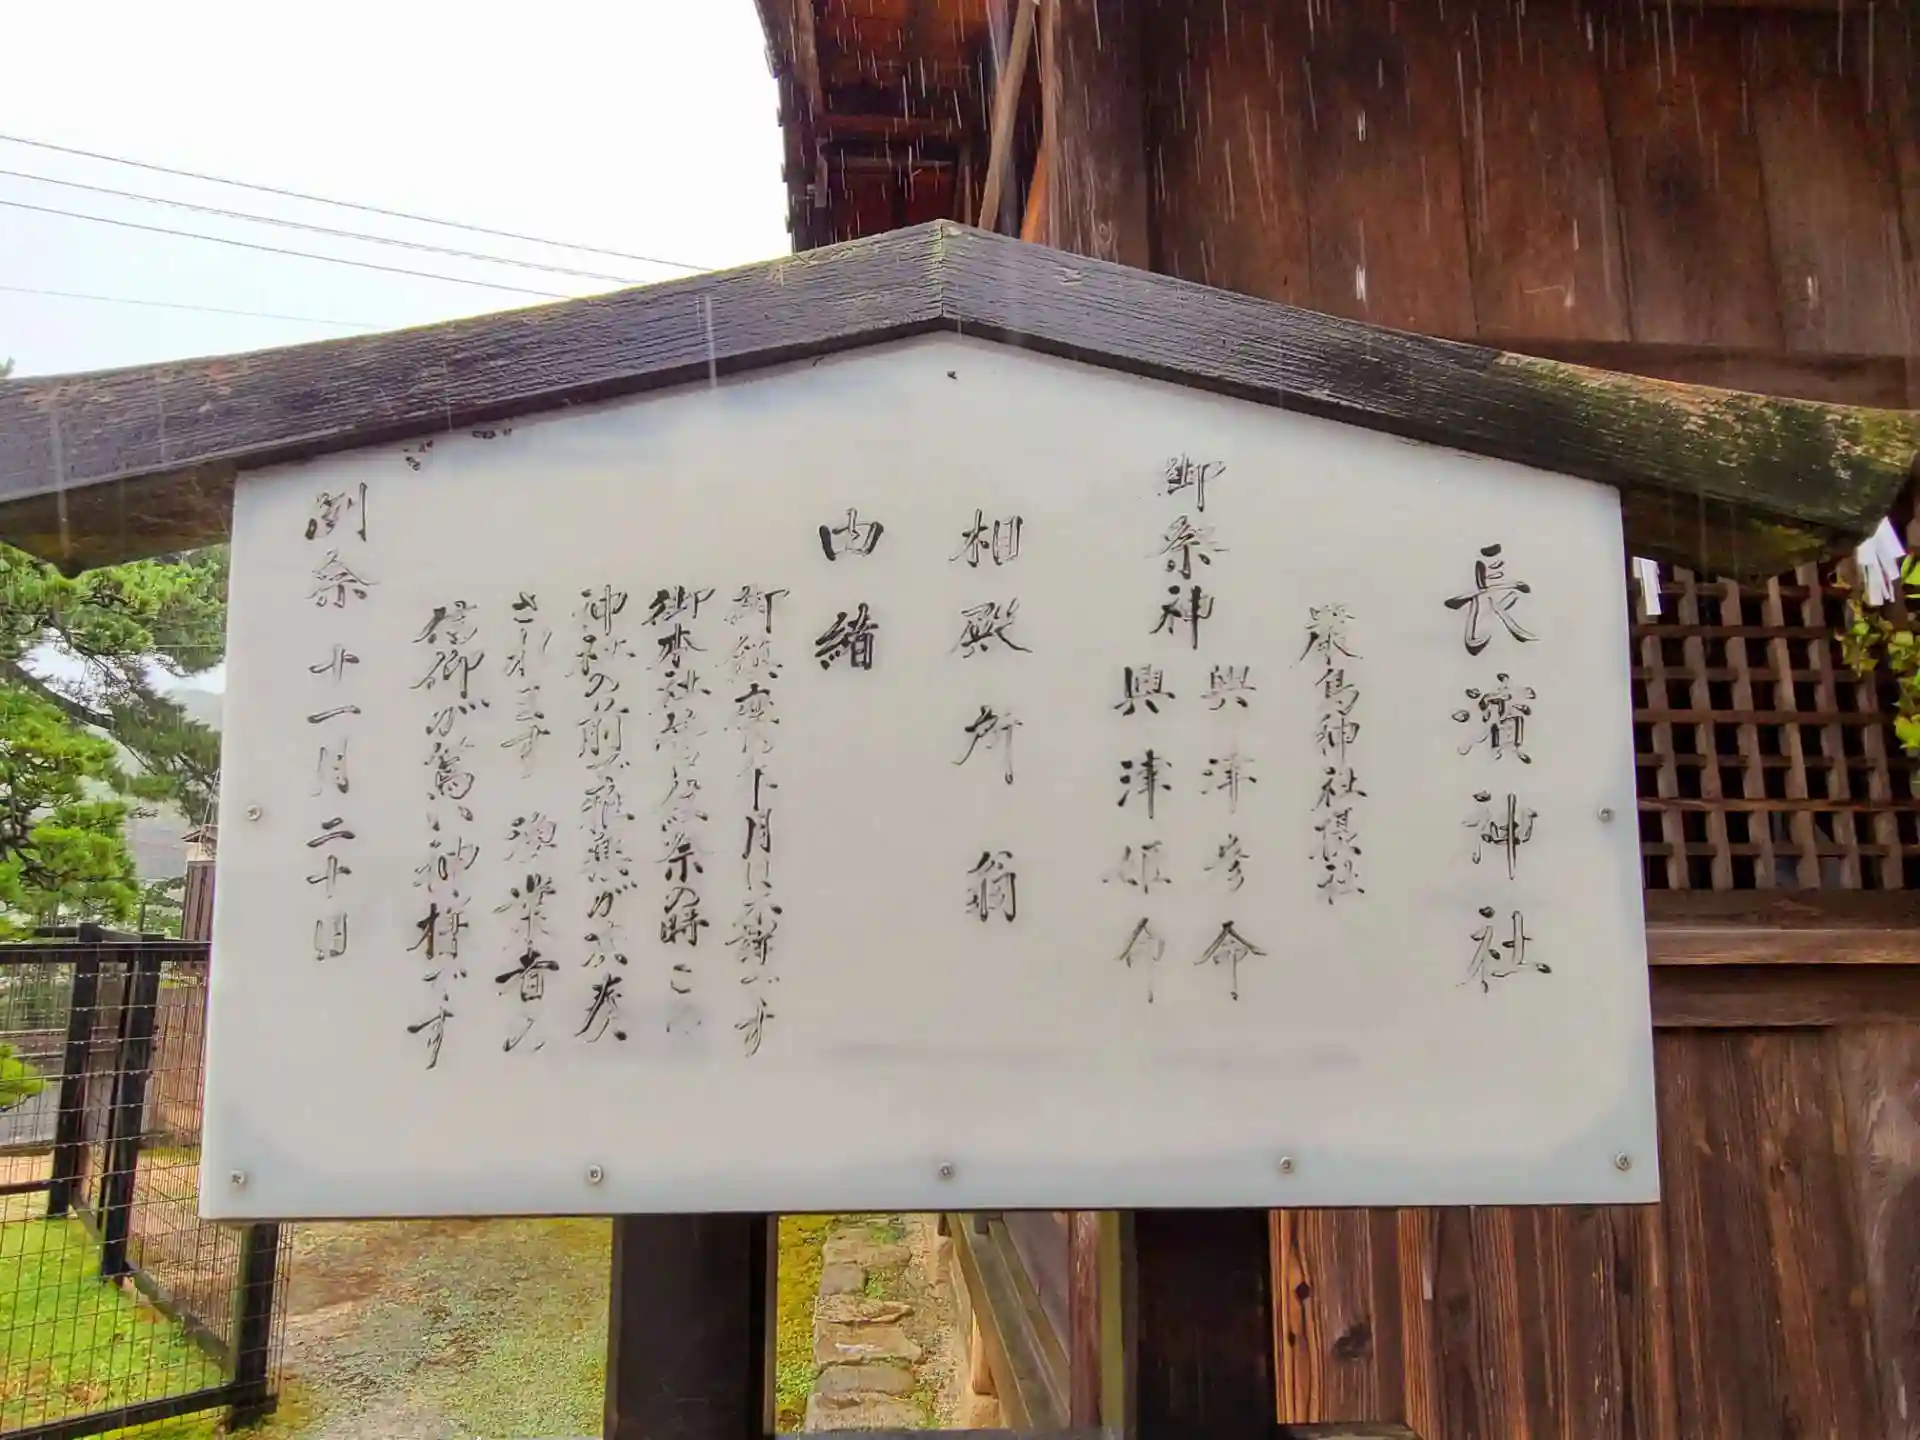 長濱神社
厳島神社摂社
御祭神
興津彦命
興津姫命
相殿 所翁
由緒
御鎮座年月は不詳です
御本社管絃祭の時この
神社の前で雅楽が演奏
されます 漁業者の
信仰が篤い神様です
例祭 十一月二十日